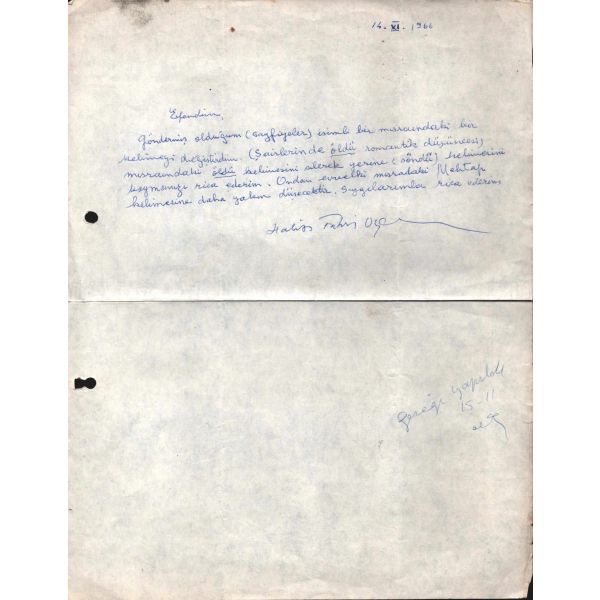 14. XI. 1966
Efendim,
Göndermiş olduğum (Sayfiyeler) isimli bir mısraındaki bir
kelimeyi değiştirdim. (Şairlerinde öldü romantik düşüncesi)
mısraındaki öldü kelimesini silerek yerine (söndü) kelimesini
koymanızı rica ederim. Ondan evvelki mısradaki Mehtap
kelimesine daha yakın düşecektir. Saygılarımla rica ederim
Halit Fahri Oz
Gereği yapıldı
15-11